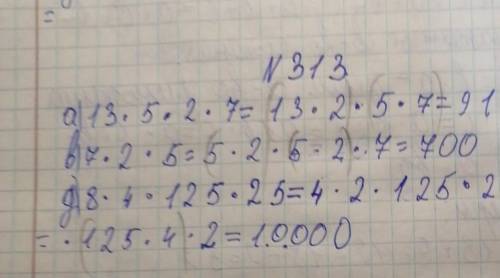 N 313
а) 13 · 5 · 2 · 7 = (13 · 2) · (5 · 7) = 91
в) 7 · 2 · 5 = (5 · 2 · (5 - 2) · 7 = 700
д) 8 · 4 · 125 · 25 = 4 · 2 · 125 · 2
= · (125 · 4) · 2 = 10.000